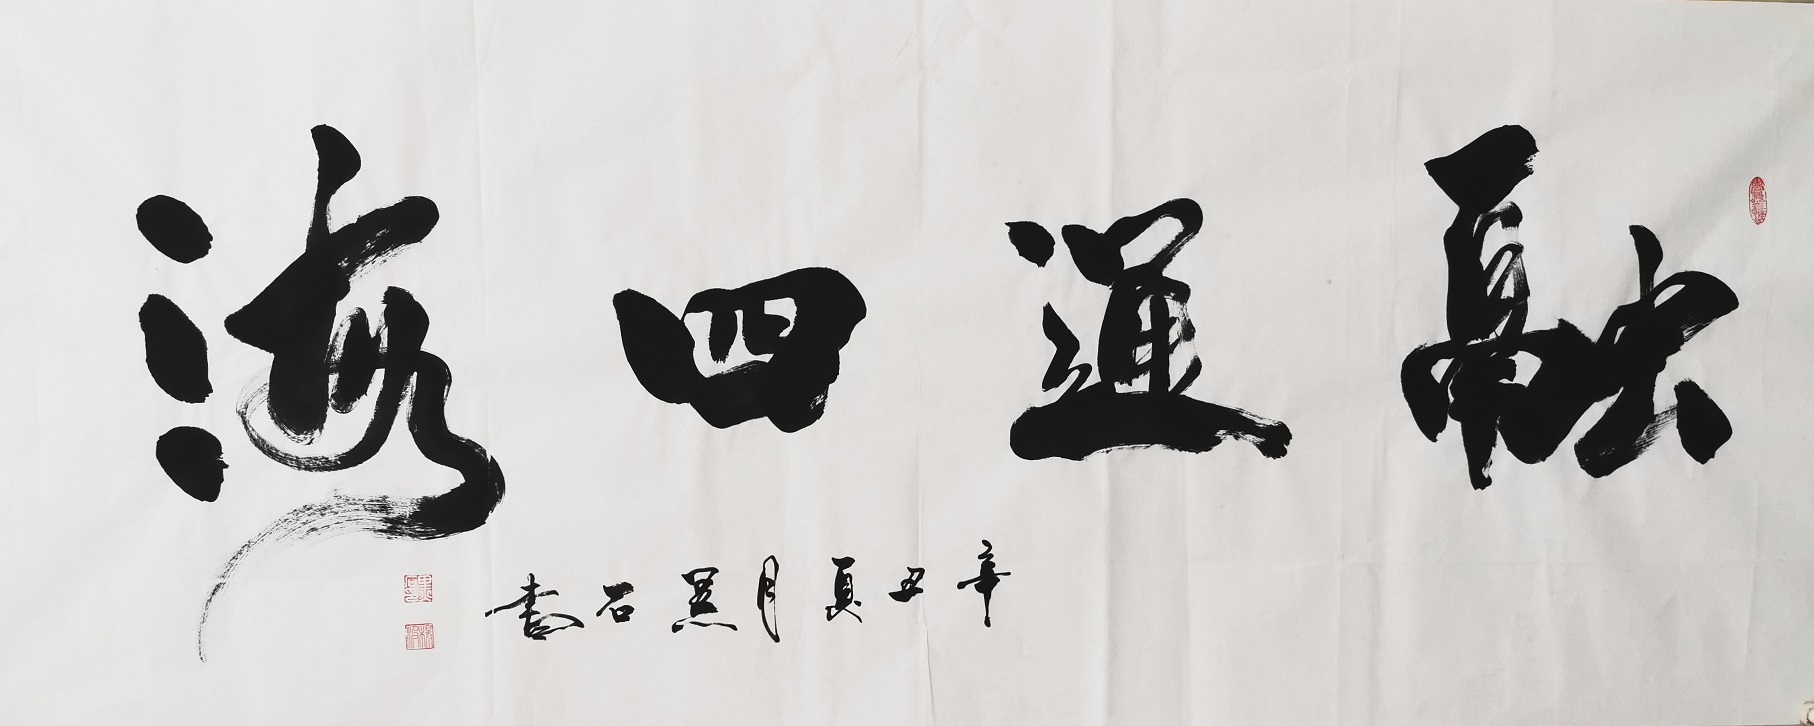 融通四海
辛丑夏月黑石書